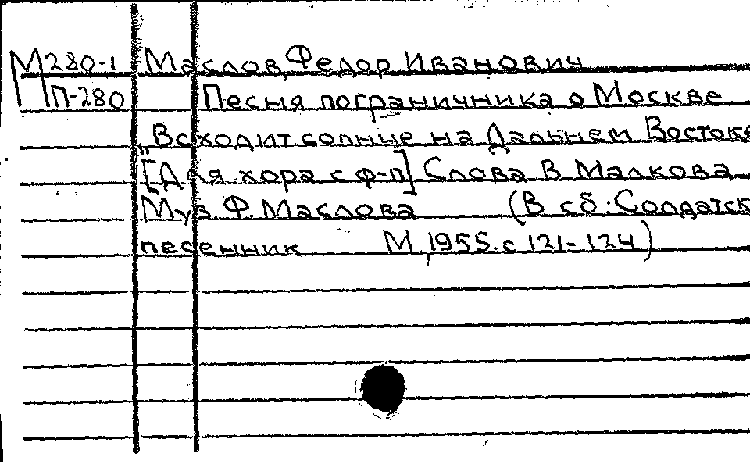 М280-1 Маслов, Федор Иванович
П-280 Песня пограничника о Москве
„Всходит солнце на Дальнем Востоке
[Для хора с ф-п] Слова В. Малкова
Муз. Ф. Маслова (В сб: Солдатск
песенник М, 1955. с 121-124)